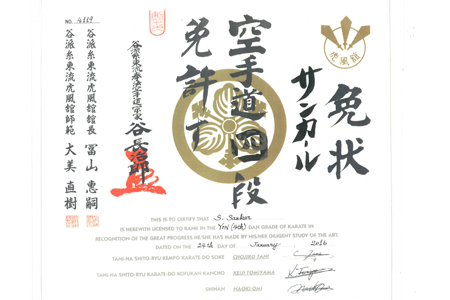 虎風館
免状
サンカール
空手道四段
免許す
谷派糸東流拳法空手道宗家 谷長治郎
谷派糸東流虎風館館長 冨山惠嗣
谷派糸東流虎風館師範 大美直樹
NO.
THIS IS TO CERTIFY THAT S. Sarkar
IS HEREWITH LICENSED TO RANK IN THE YON (4th) DAN GRADE OF KARATE IN
RECOGNITION OF THE GREAT PROGRESS HE/SHE HAS MADE BY HIS/HER DILIGENT STUDY OF THE ART.
DATED ON THE 24th DAY OF January 2016
TANI-HA SHITO-RYU KEMPO KARATE-DO SOKE CHOJIRO TANI
TANI-HA SHITO-RYU KARATE-DO KOFUKAN KANCHO KEIJI TOMIYAMA
SHIHAN NAOKI OMI